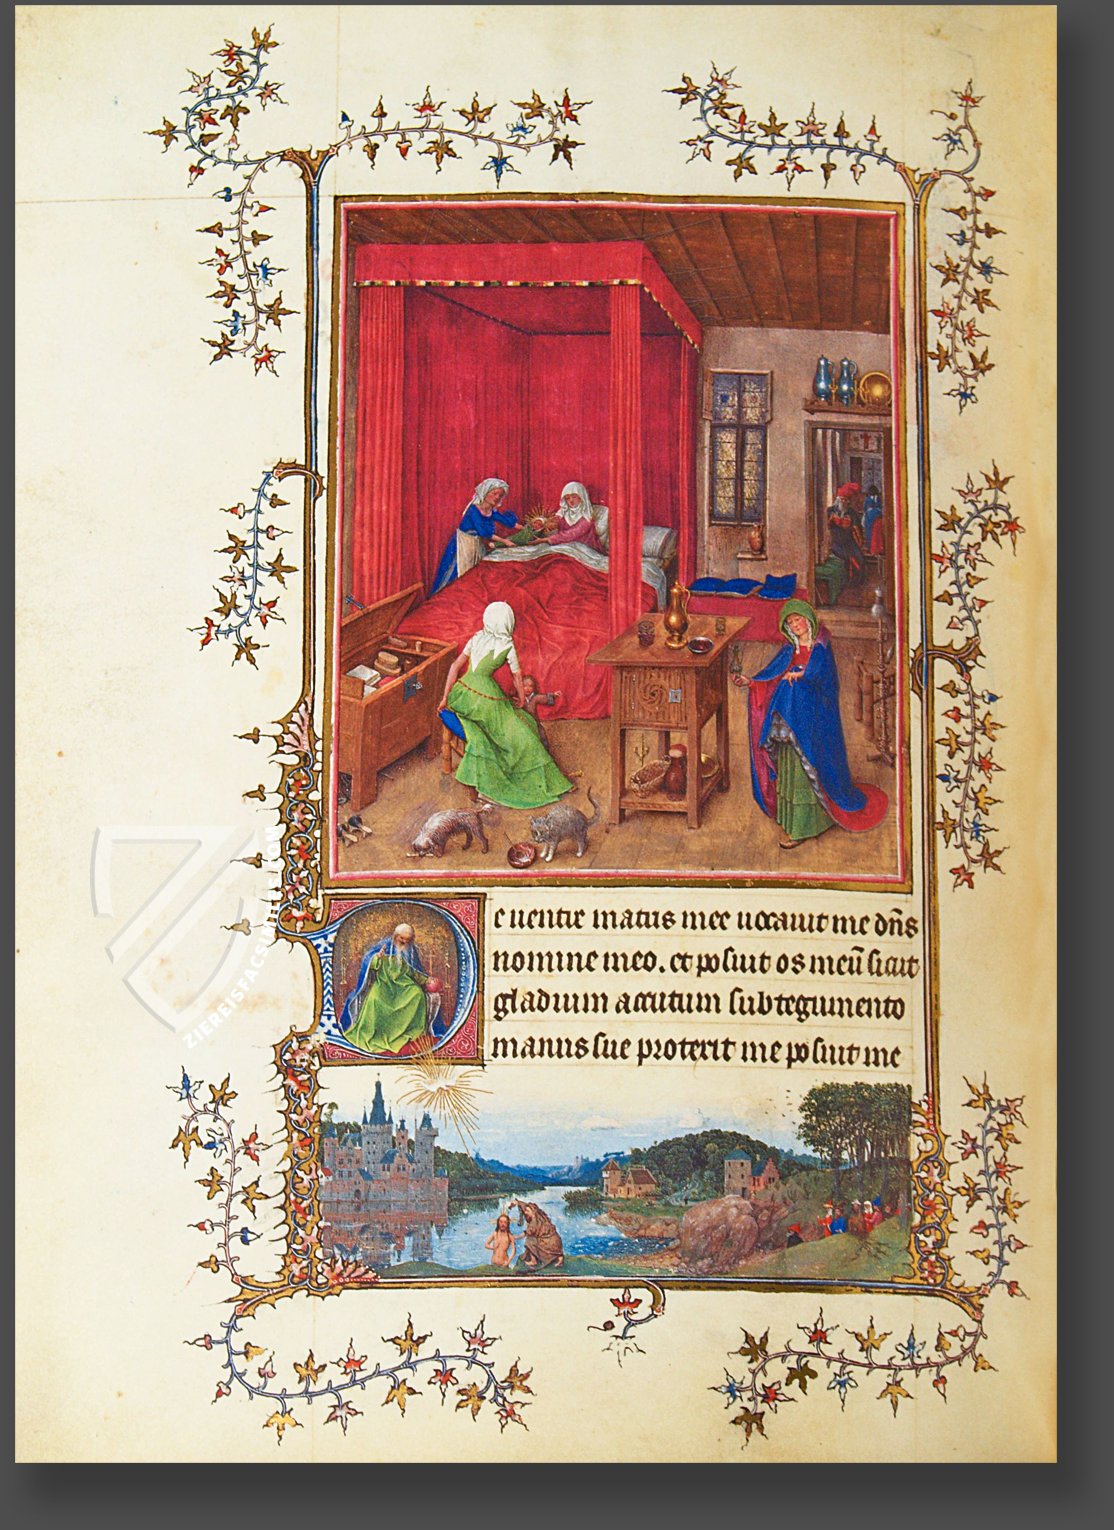 De uentre matris mee uocauit me dn̄s
nomine meo. et posuit os meū sicut
gladium accutum sub tegumento
manus sue protexit me posuit me
ZIEREISFACSIMILE.COM